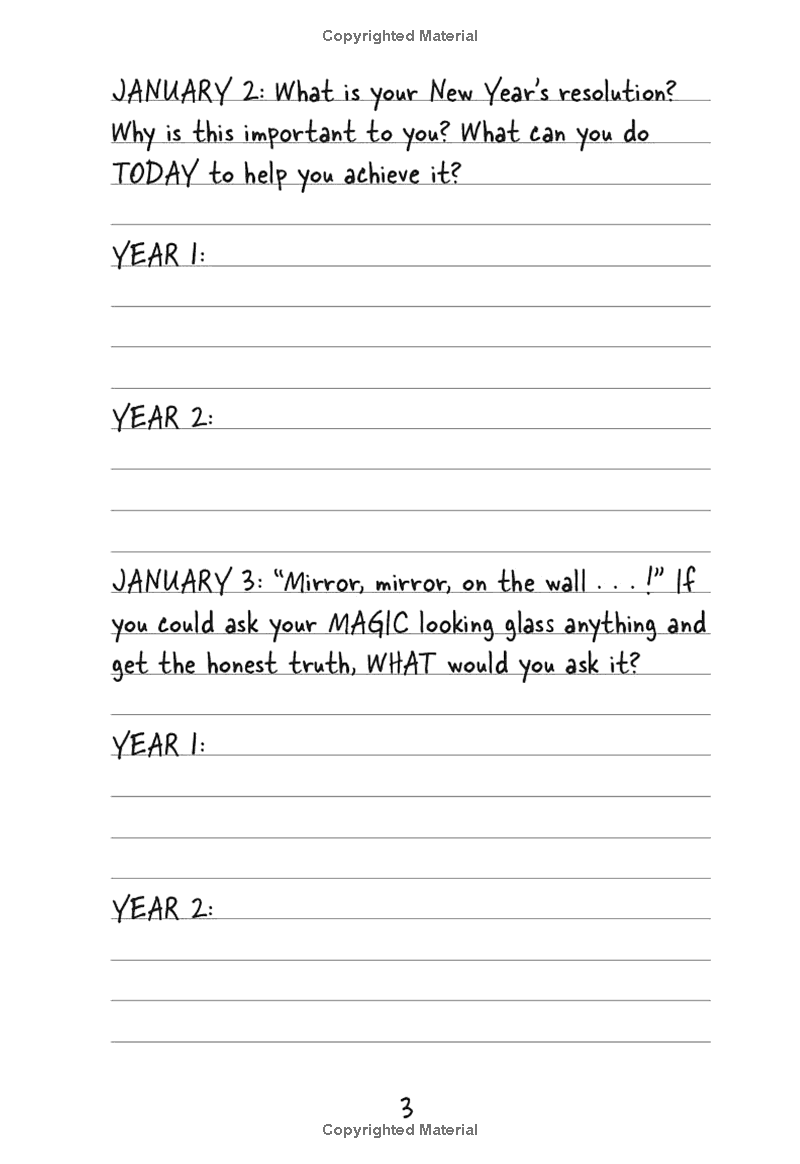 Copyrighted Material
JANUARY 2: What is your New Year's resolution?
Why is this important to you? What can you do
TODAY to help you achieve it?
YEAR 1:
YEAR 2:
JANUARY 3: “Mirror, mirror, on the wall . . . !” If
you could ask your MAGIC looking glass anything and
get the honest truth, WHAT would you ask it?
YEAR 1:
YEAR 2:
3
Copyrighted Material